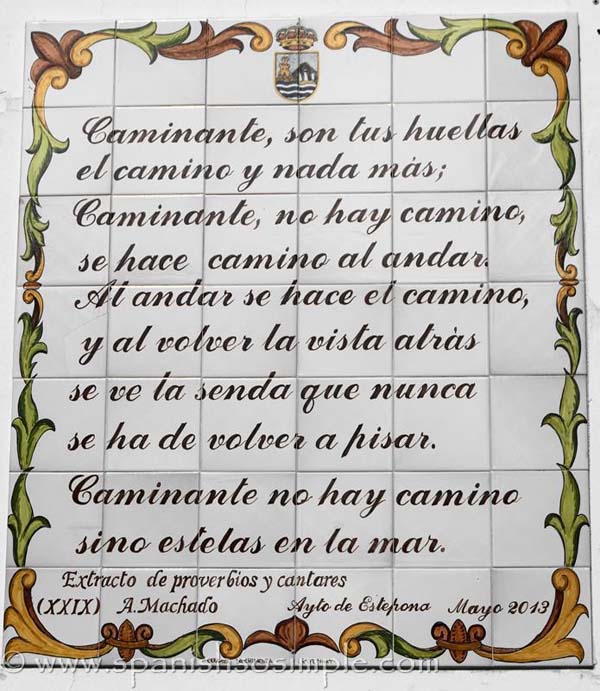 Caminante, son tus huellas
el camino y nada más;
Caminante, no hay camino,
se hace camino al andar.
Al andar se hace el camino,
y al volver la vista atràs
se ve la senda que nunca
se ha de volver a pisar.
Caminante no hay camino
sino estelas en la mar.
Extracto de proverbios y cantares
(XXIX) A. Machado Ayto de Estepona Mayo 2013
© www.spanishsosimple.com